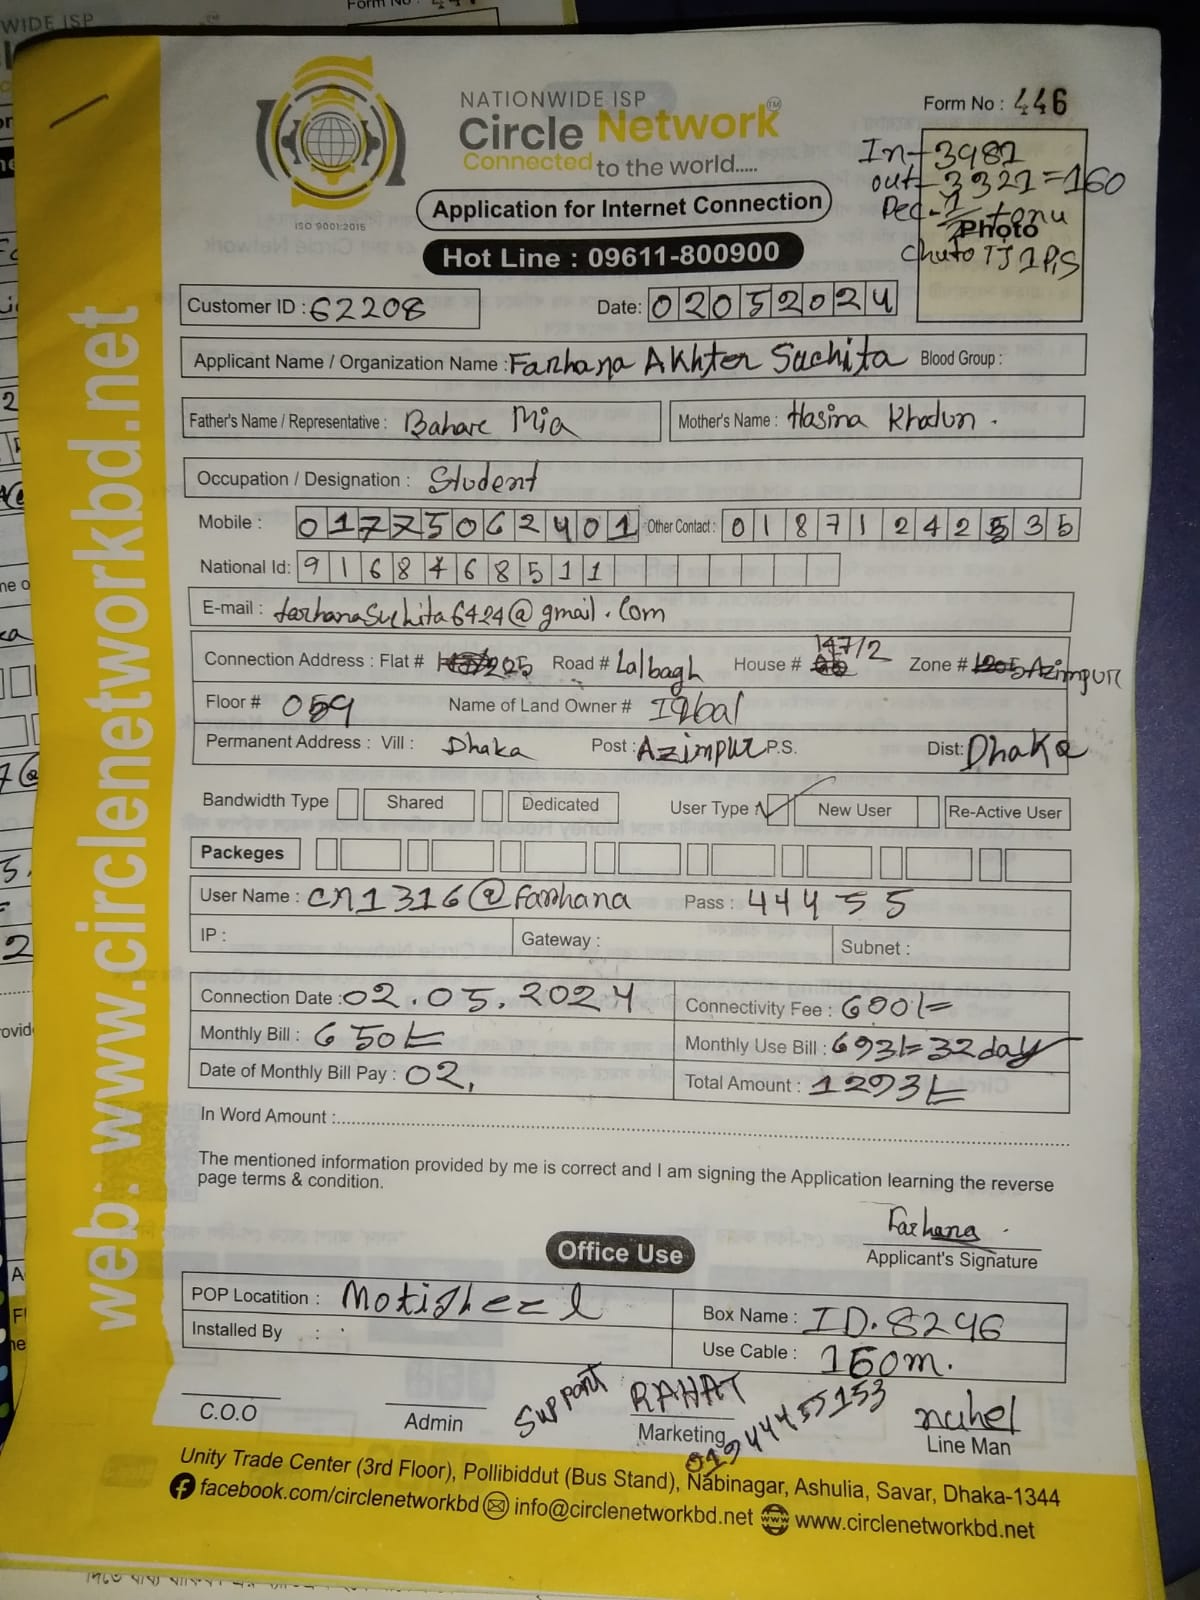 NATIONWIDE ISP
Circle Network™
Connected to the world.....
ISO 9001:2015
Form No : 446
In-3481
out-3321=160
Dec-1
Photo
chuto TJ 1 Pis
Application for Internet Connection
Hot Line : 09611-800900
Customer ID : 62208
Date: 02052024
Applicant Name / Organization Name : Farhana Akhter Suchita Blood Group :
Father's Name / Representative : Bahare Mia Mother's Name : Hasina Khatun .
Occupation / Designation : Student
Mobile : 01775062401 Other Contact : 01871242535
National Id: 9168468511
E-mail : farhanasuchita6424@gmail.com
Connection Address : Flat # 205 Road # Lalbagh House # 147/2 Zone # Azimpur
Floor # 059 Name of Land Owner # Iqbal
Permanent Address : Vill : Dhaka Post : Azimpur P.S. Dist: Dhaka
Bandwidth Type Shared Dedicated User Type New User Re-Active User
Packeges
User Name : cn1316@farhana Pass : 44455
IP : Gateway : Subnet :
Connection Date : 02.05.2024 Connectivity Fee : 600/=
Monthly Bill : 650/= Monthly Use Bill : 693/= 32 day
Date of Monthly Bill Pay : 02, Total Amount : 1293/=
In Word Amount :
The mentioned information provided by me is correct and I am signing the Application learning the reverse
page terms & condition.
Farhana
Applicant's Signature
Office Use
POP Locatition : Motijheel Box Name : ID.8246
Installed By : Use Cable : 160m.
C.O.O Admin Support RAHAT Marketing nuhel Line Man
01944455153
Unity Trade Center (3rd Floor), Pollibiddut (Bus Stand), Nabinagar, Ashulia, Savar, Dhaka-1344
facebook.com/circlenetworkbd info@circlenetworkbd.net www.circlenetworkbd.net
web: www.circlenetworkbd.net